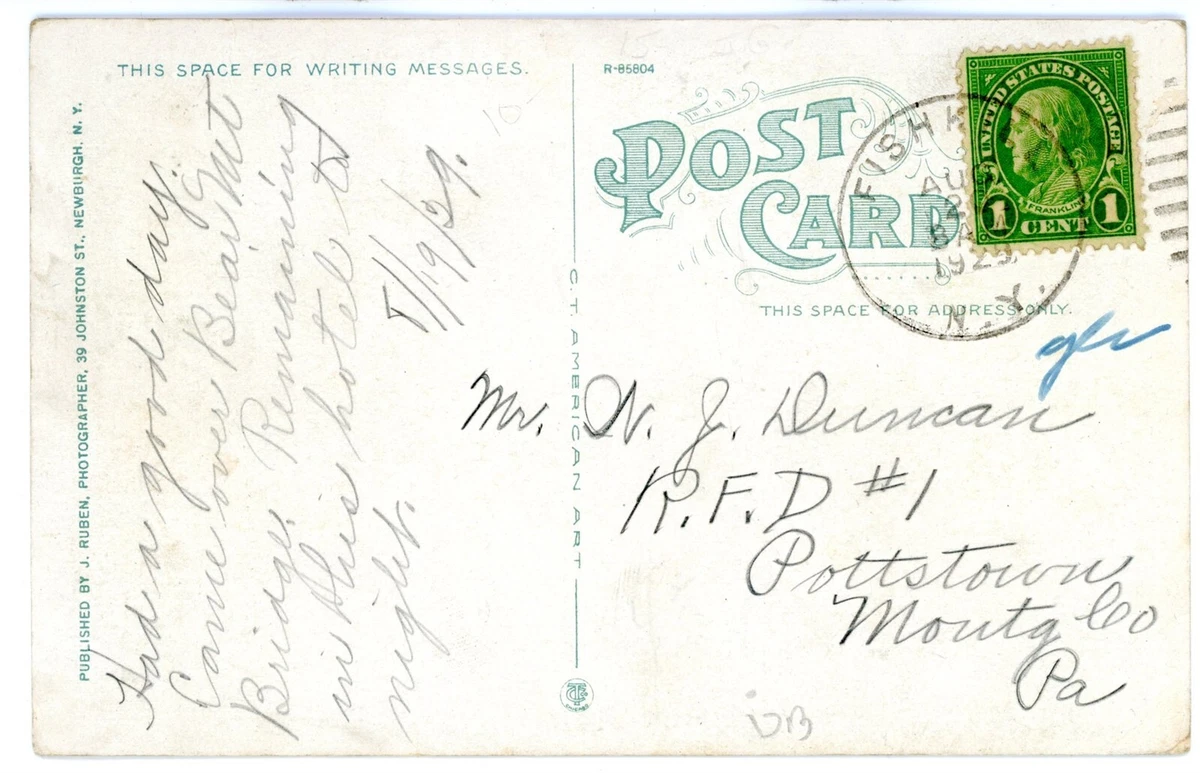 THIS SPACE FOR WRITING MESSAGES.
Had a good day.
Came over Bear Mt
Bridge. Remaining
in this hotel to
night.
PUBLISHED BY J. RUBEN, PHOTOGRAPHER, 39 JOHNSTON ST., NEWBURGH, N. Y.
C.T. AMERICAN ART
R-85804
POST
CARD
UNITED STATES POSTAGE
FRANKLIN
1 CENT 1
FISHK
AU
1929
N.Y.
THIS SPACE FOR ADDRESS ONLY.
Mr. N. J. Duncan
R.F.D #1
Pottstown
Montg Co
Pa